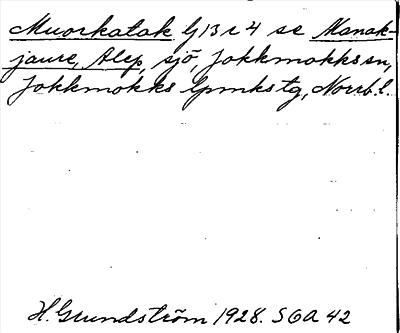 Muorkatak G13c4 se Manak-
jaure, Alep, sjö, Jokkmokks sn,
Jokkmokks lpmkstg, Norrb.l.
H. Grundström 1928. SOA 42